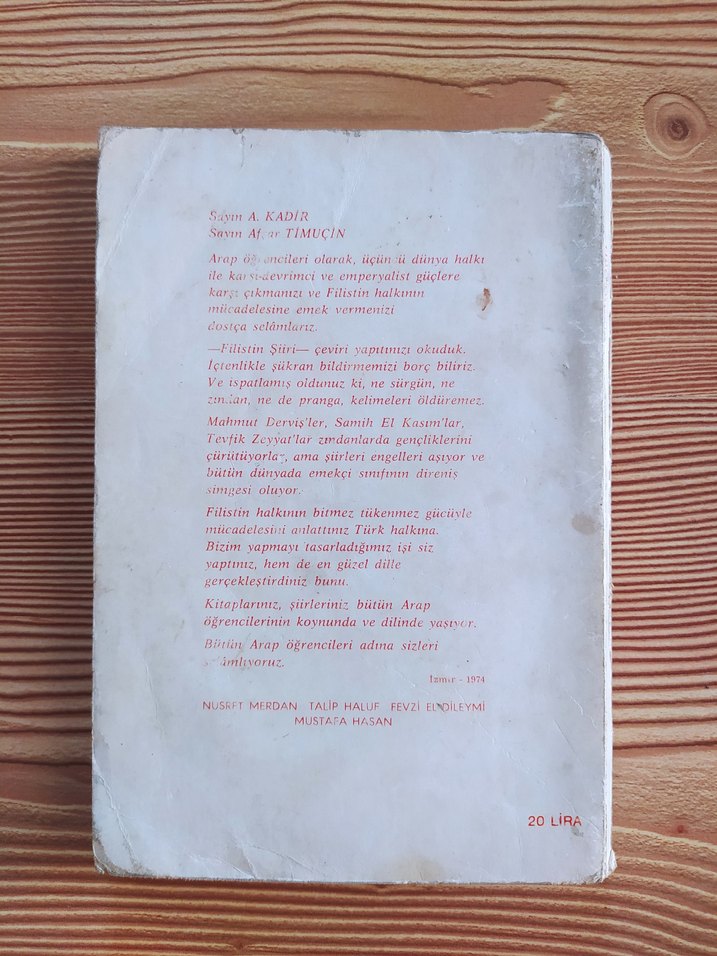 Sayın A. KADİR
Sayın Afşar TİMUÇİN
Arap öğrencileri olarak, üçüncü dünya halkı
ile karşı-devrimci ve emperyalist güçlere
karşı çıkmanızı ve Filistin halkının
mücadelesine emek vermenizi
dostça selâmlarız.
—Filistin Şiiri— çeviri yapıtınızı okuduk.
İçtenlikle şükran bildirmemizi borç biliriz.
Ve ispatlamış oldunuz ki, ne sürgün, ne
zından, ne de pranga, kelimeleri öldüremez.
Mahmut Derviş'ler, Samih El Kasım'lar,
Tevfik Zeyyat'lar zındanlarda gençliklerini
çürütüyorlar, ama şiirleri engelleri aşıyor ve
bütün dünyada emekçi sınıfının direniş
simgesi oluyor.
Filistin halkının bitmez tükenmez gücüyle
mücadelesini anlattınız Türk halkına.
Bizim yapmayı tasarladığımız işi siz
yaptınız, hem de en güzel dille
gerçekleştirdiniz bunu.
Kitaplarınız, şiirleriniz bütün Arap
öğrencilerinin koynunda ve dilinde yaşıyor.
Bütün Arap öğrencileri adına sizleri
selâmlıyoruz.
İzmir - 1974
NUSRET MERDAN TALİP HALUF FEVZİ EL DİLEYMİ
MUSTAFA HASAN
20 LİRA